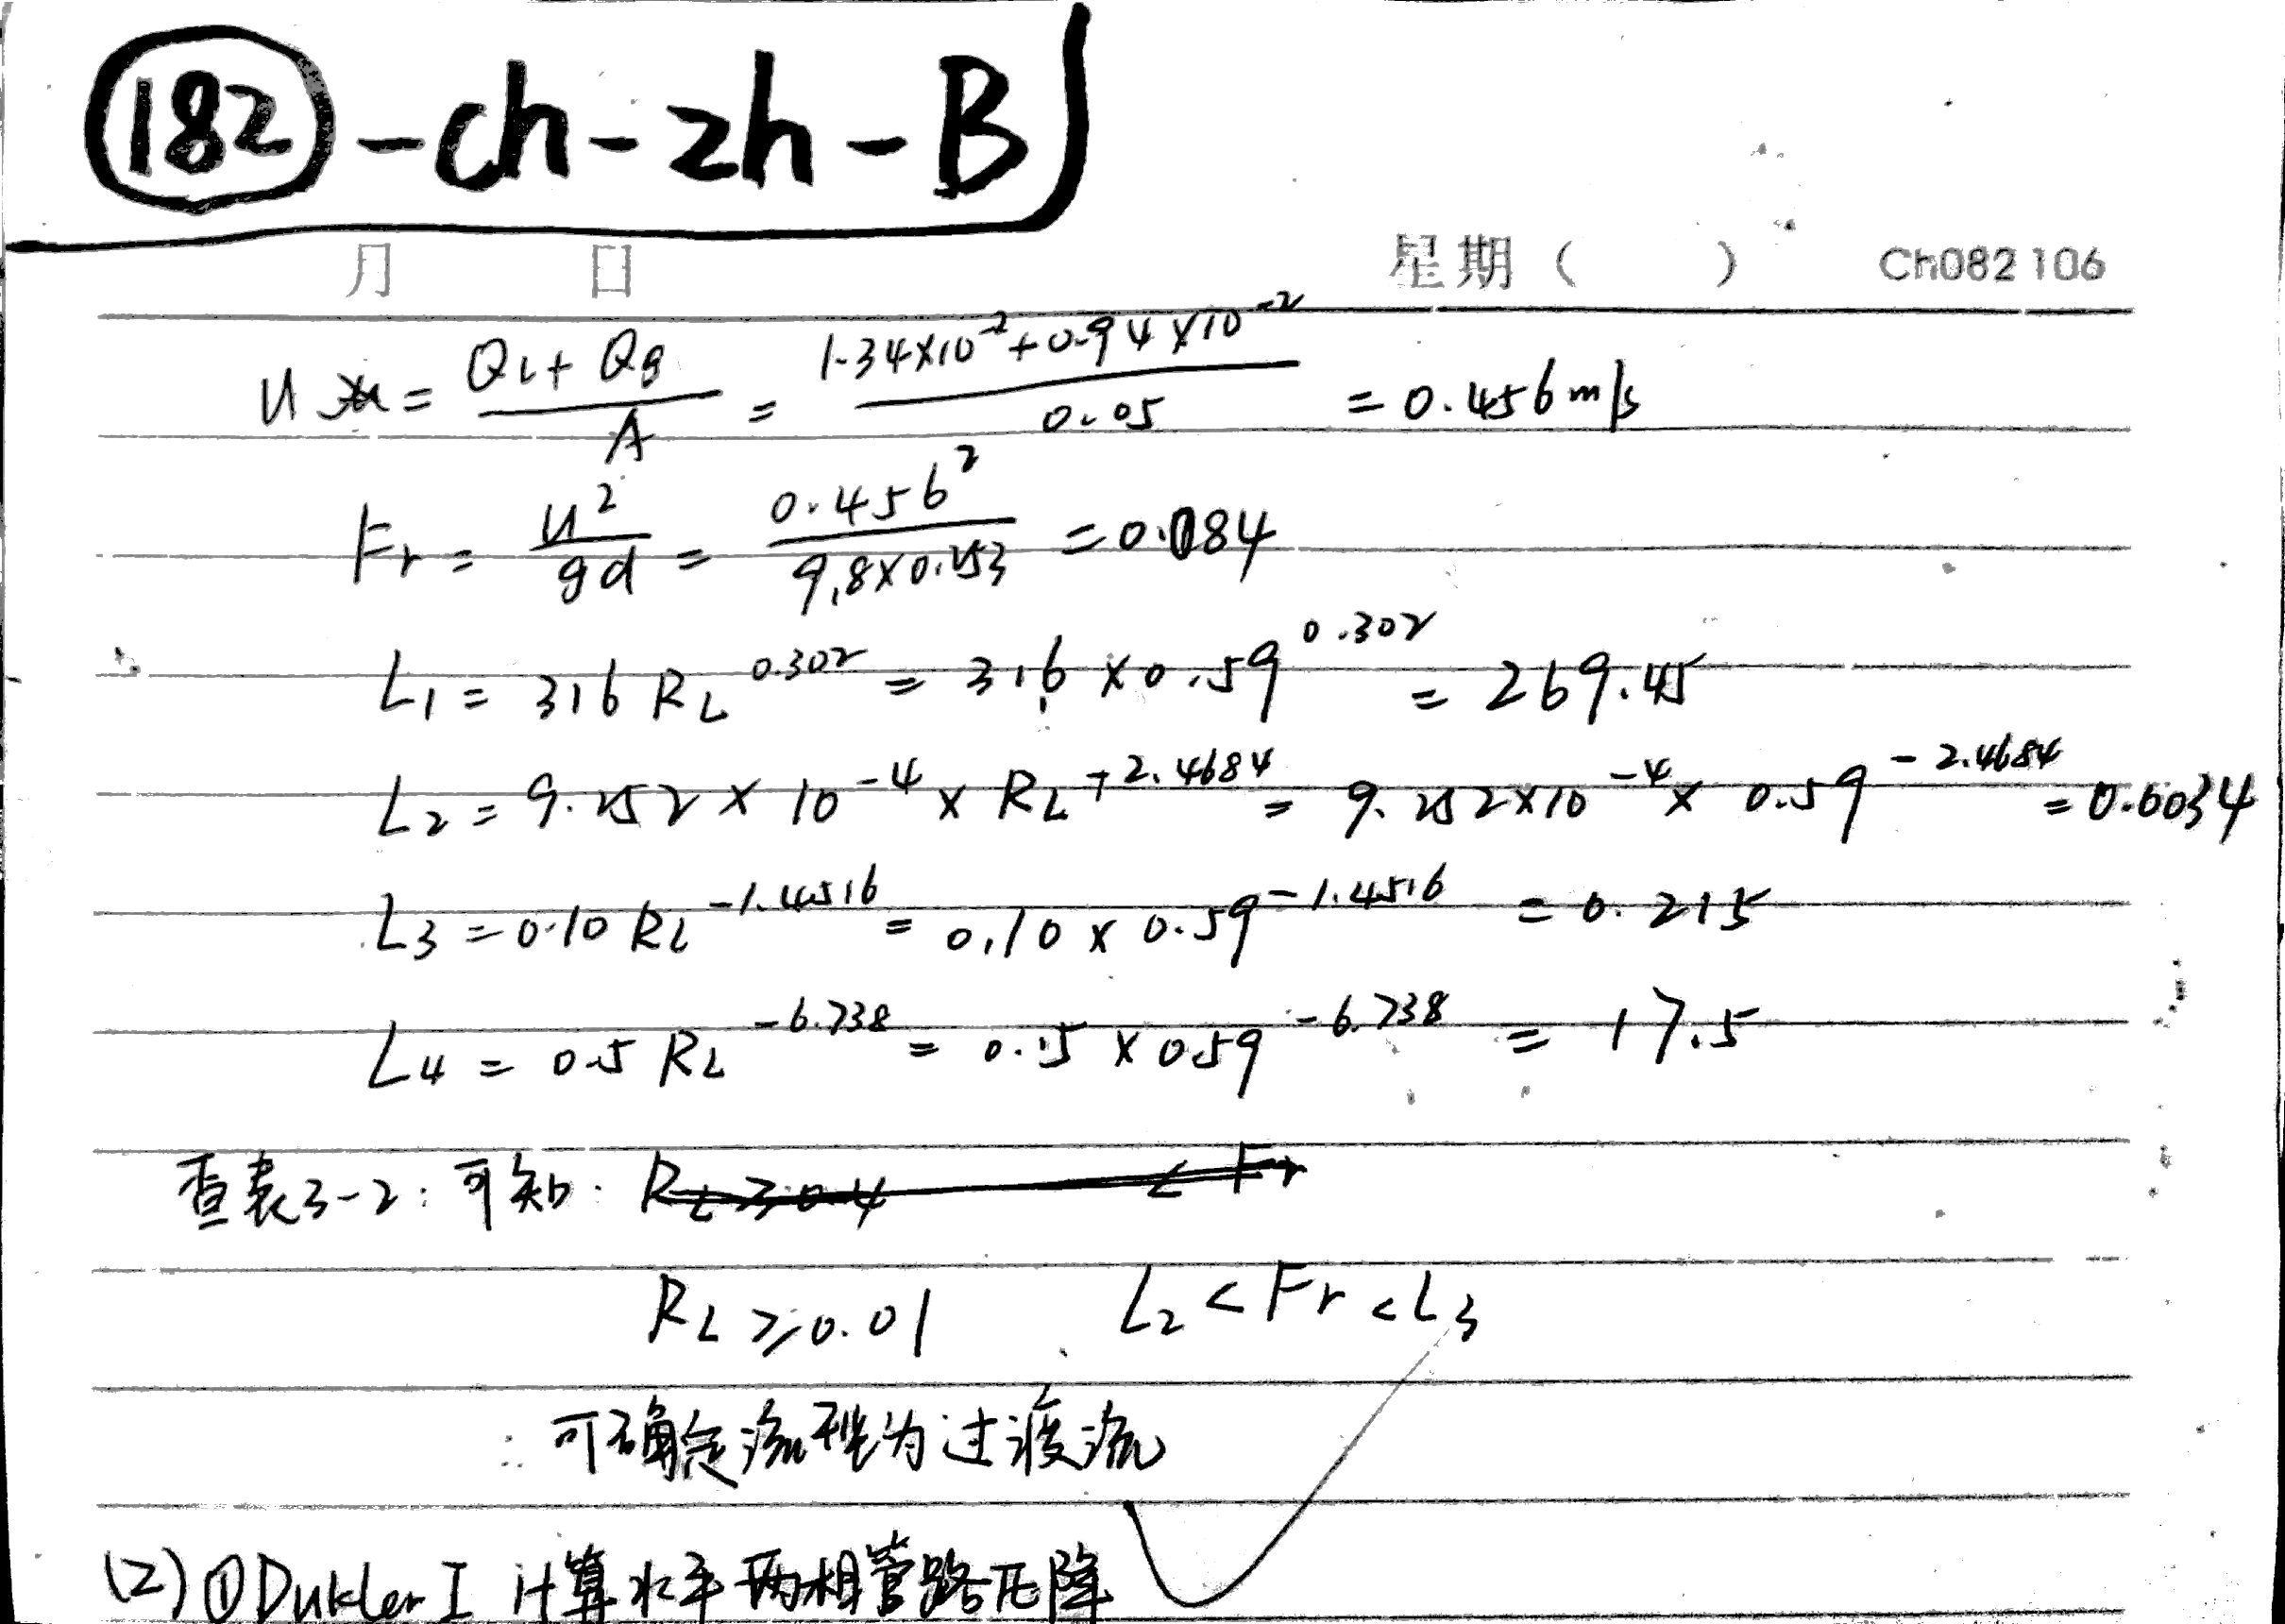 182-ch-zh-B
月 日 星期( ) Ch082106
u = (QL + Qg)/A = (1.34×10^-2 + 0.94×10^-2)/0.05 = 0.456 m/s
Fr = u^2/gd = 0.456^2/(9.8×0.253) = 0.084
L1 = 316 RL^0.302 = 316 × 0.59^0.302 = 269.45
L2 = 9.252 × 10^-4 × RL^-2.4684 = 9.252×10^-4 × 0.59^-2.4684 = 0.0034
L3 = 0.10 RL^-1.4516 = 0.10 × 0.59^-1.4516 = 0.215
L4 = 0.5 RL^-6.738 = 0.5 × 0.59^-6.738 = 17.5
查表3-2:可知:
RL ≥ 0.01 L2 < Fr < L3
可确定流型为过渡流
(2) ① Dukler I 计算水平两相管路压降